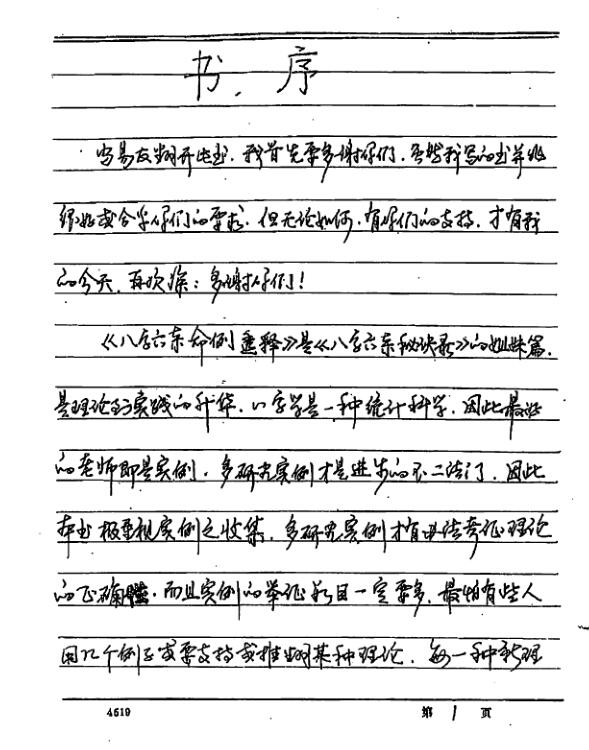 书.序
当易友翻开此书,我首先要多谢你们,虽然我写的书并非
很好或合乎你们的要求,但无论如何,有你们的支持,才有我
的今天,再次深:多谢你们!
《八字六亲命例垂释》是《八字六亲秘诀录》的姐妹篇,
是理论到实践的升华,八字学是一种统计科学,因此最好
的老师即是实例,多研究实例才是进步的不二法门,因此
本书极重视实例之收集,多研究实例才有办法考证理论
的正确性,而且实例的举证数目一定要多,最怕有些人
用几个例子或要支持或推翻某种理论,每一种新理
4619
第 1 页